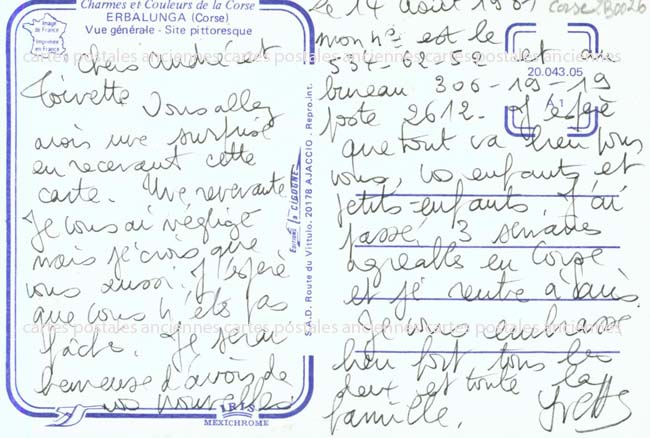 Charmes et Couleurs de la Corse
ERBALUNGA (Corse)
Vue générale - Site pittoresque
Image
de France
Imprimée
en France
Chers André et
Toinette Vous allez
avoir une surprise
en recevant cette
carte. Une revenante
Je vous ai négligé
mais je crois que
vous aussi. J'espère
que vous n'êtes pas
fâchés. Je serai
heureuse d'avoir de
vos nouvelles
Editions La CIGOGNE
S.A.D. Route du Vittulo. 20178 AJACCIO . Repro. int.
IRIS
MEXICHROME
le 14 Août 1981
Corse 2B0026
mon n° est le
et
20.043.05
A 1
bureau 306-19-19
poste 2612 - J'espère
que tout va bien pour
vous, vos enfants et
petits-enfants. J'ai
passé 3 semaines
agréables en Corse
et je rentre à Paris.
Je vous embrasse
bien fort tous les
deux et toute la
famille. Yvette
cartes postales anciennes cartes postales anciennes cartes postales anciennes
cartes postales anciennes cartes postales anciennes cartes postales anciennes